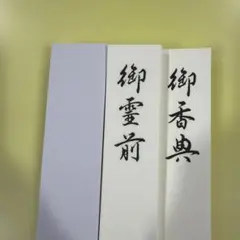 御香典
御霊前